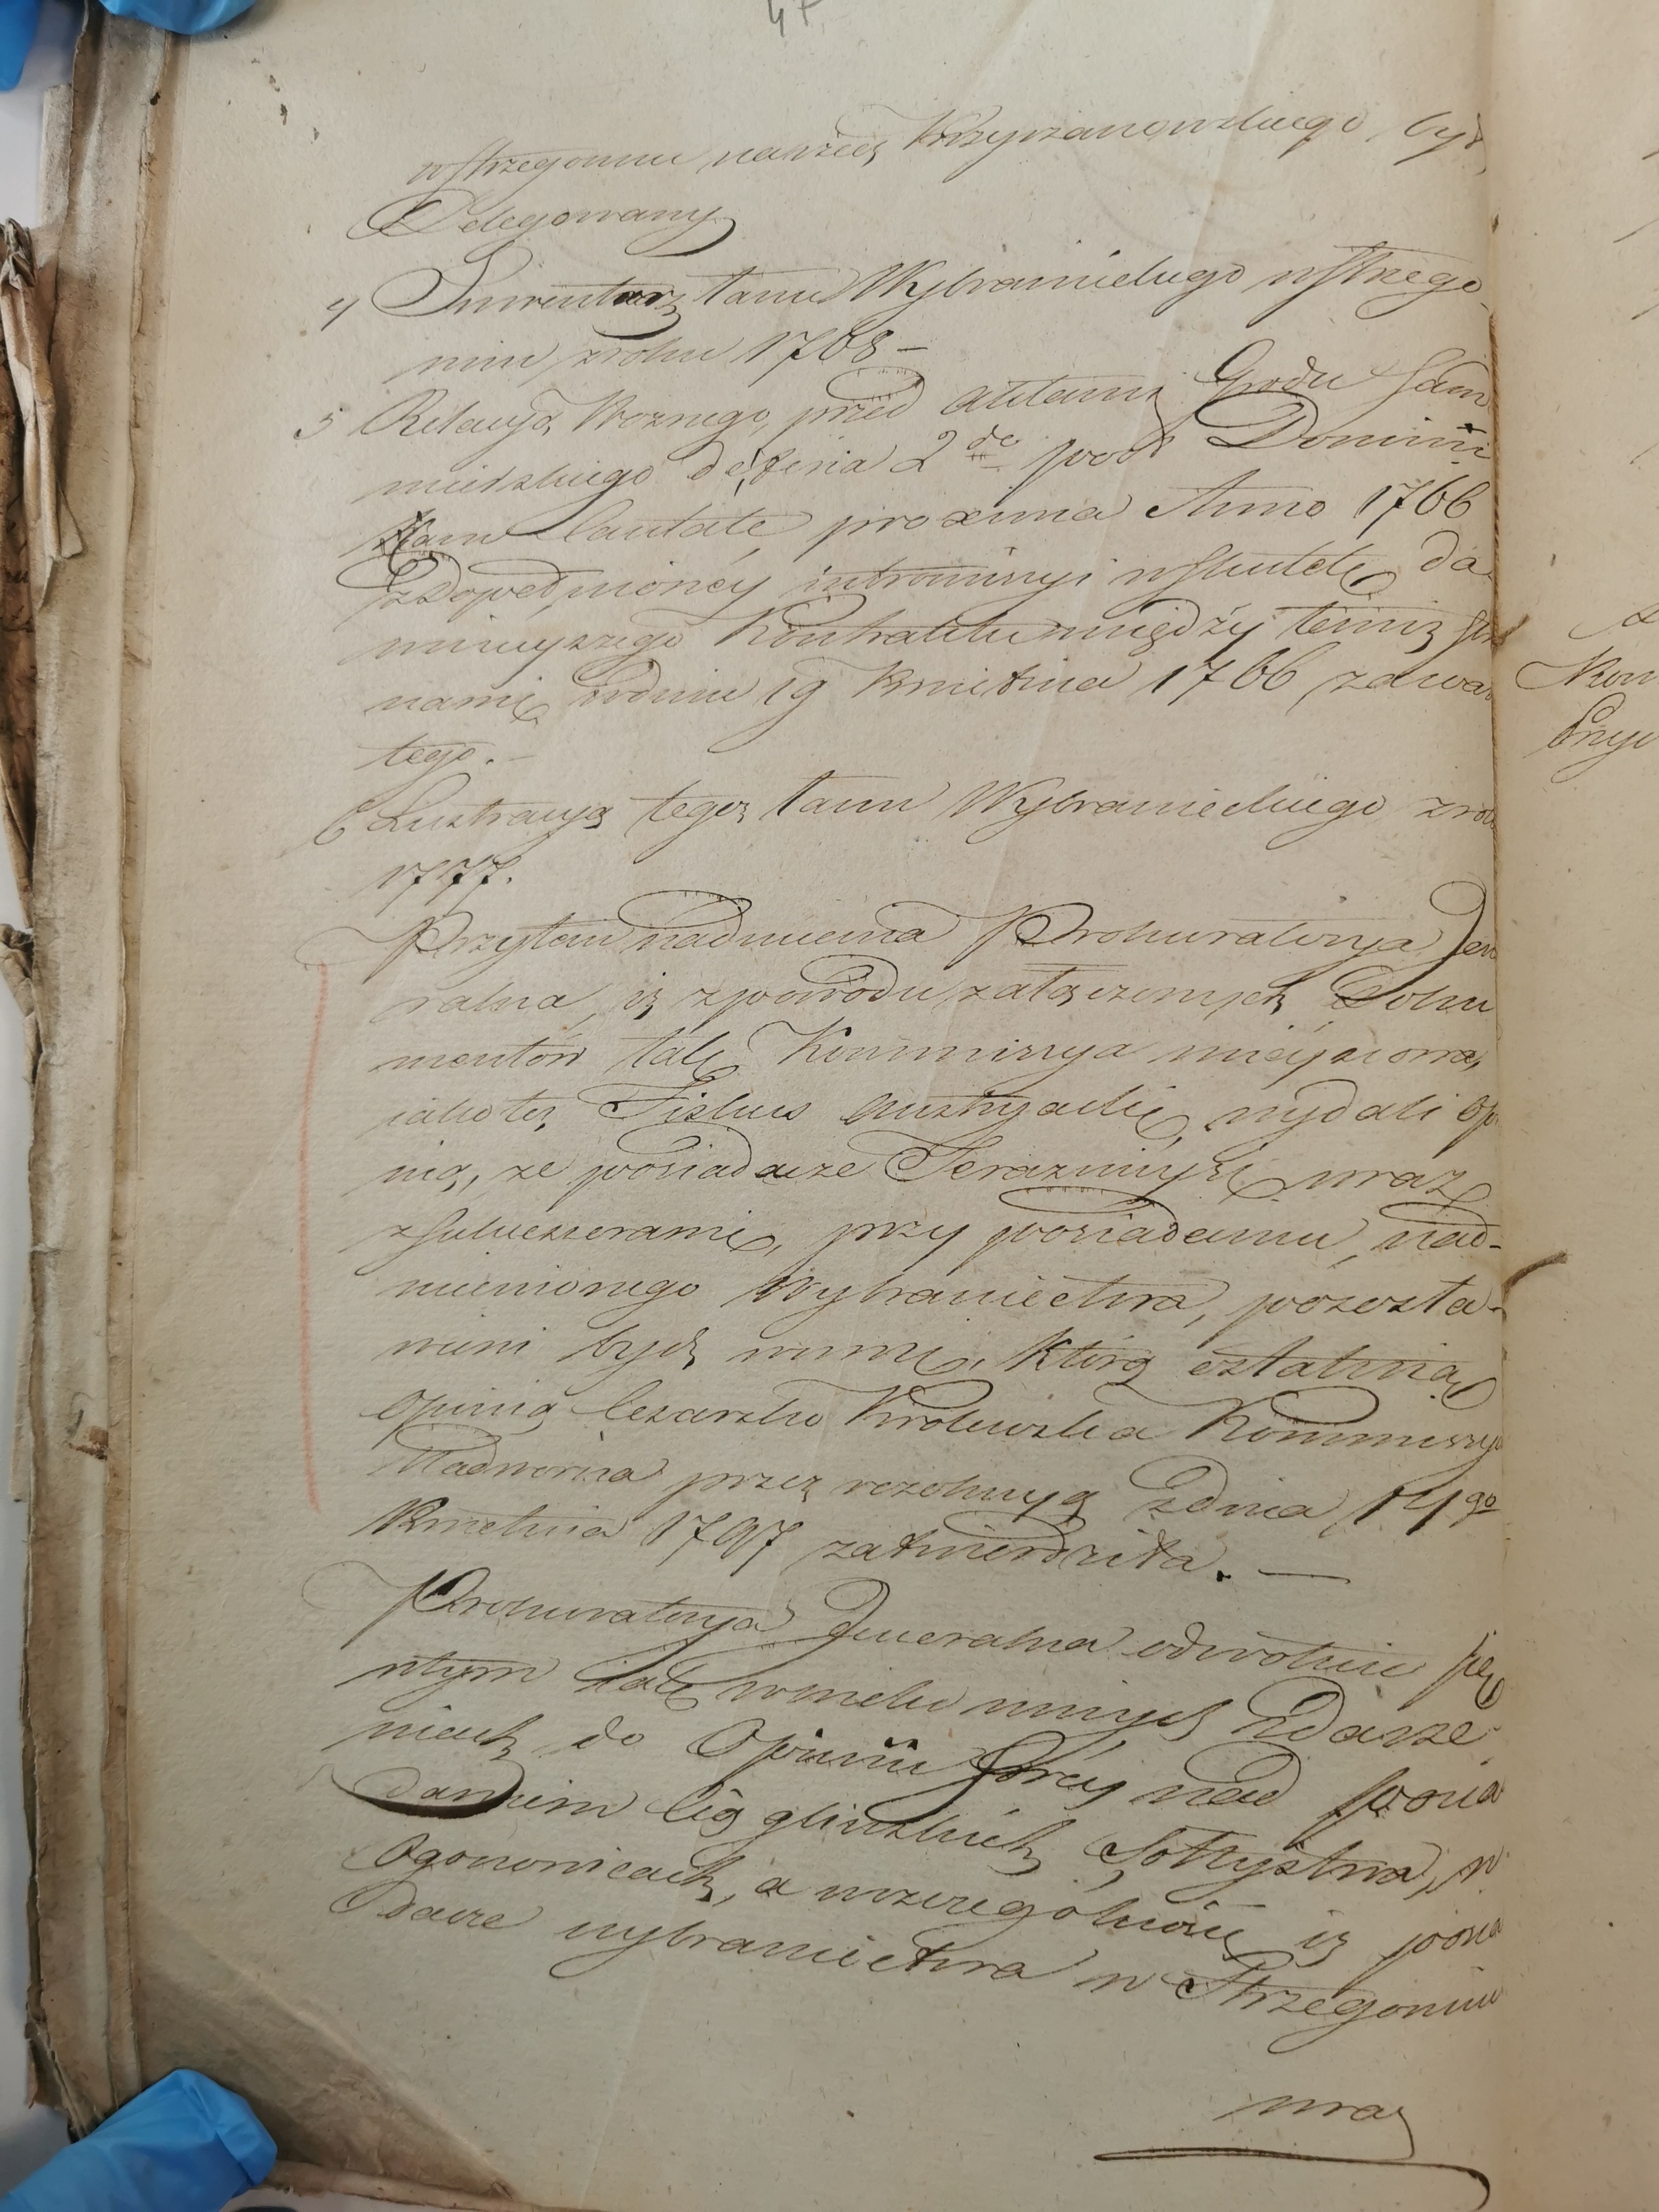 47.
w Strzegomiu na rzecz Krzyżanowskiego, był
Delegowany
4 Inwentarz Łanu Wybranieckiego w Strzego-
miu z roku 1768 –
5 Relacya Woznego, przed Aktami Grodu Sam
mirskiego de feria 2da post Domini
cam laetate proxima Anno 1766
z Dopełnioney intromissyi w skutek da
mieyszego Kontraktu między temiż stro
nami w dniu 19 Kwietnia 1766 zawar
tego. –
6 Lustracya tegoż Łanu Wybranieckiego z rok
1777.
Przytem nadmienia Prokuratorya Jen
ralna, iż z powodu załączonych Doku
mentów tak Kommissya mieyscowa,
iako też Fiskus Austryacki, wydali Opi
nią, że posiadacze Teraznieysi wraz
z sukcessorami, przy posiadaniu, nad-
mienionego Wybraniectwa, pozosta-
wieni być winni, którą ostatnią
Opinią Cesarsko Krolewska Kommissya
Nadworna przez rezolucyą z dnia 14go
Kwietnia 1797 zatwierdziła. —
Prokuratorya Jeneralna odwołuie się
w tym iak w wielu innych Zdarze
niach do Opinii swéy nad posia
daniem Ciągliński​ch Sołtystwa, w
Ogonowicach, a w szczególności iż posia
dacze wybraniectwa w Strzegomiu
wraz
Kon
Przy